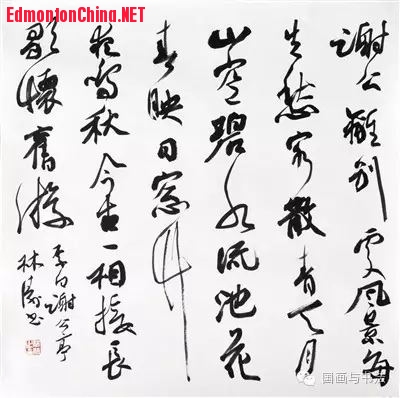 EdmontonChina.NET
谢公離别处风景每
生愁客散青天月
山空碧水流池花
春映日窓竹
夜鸣秋今古一相接长
歌懷舊游
李白谢公亭
林书
国画与书法